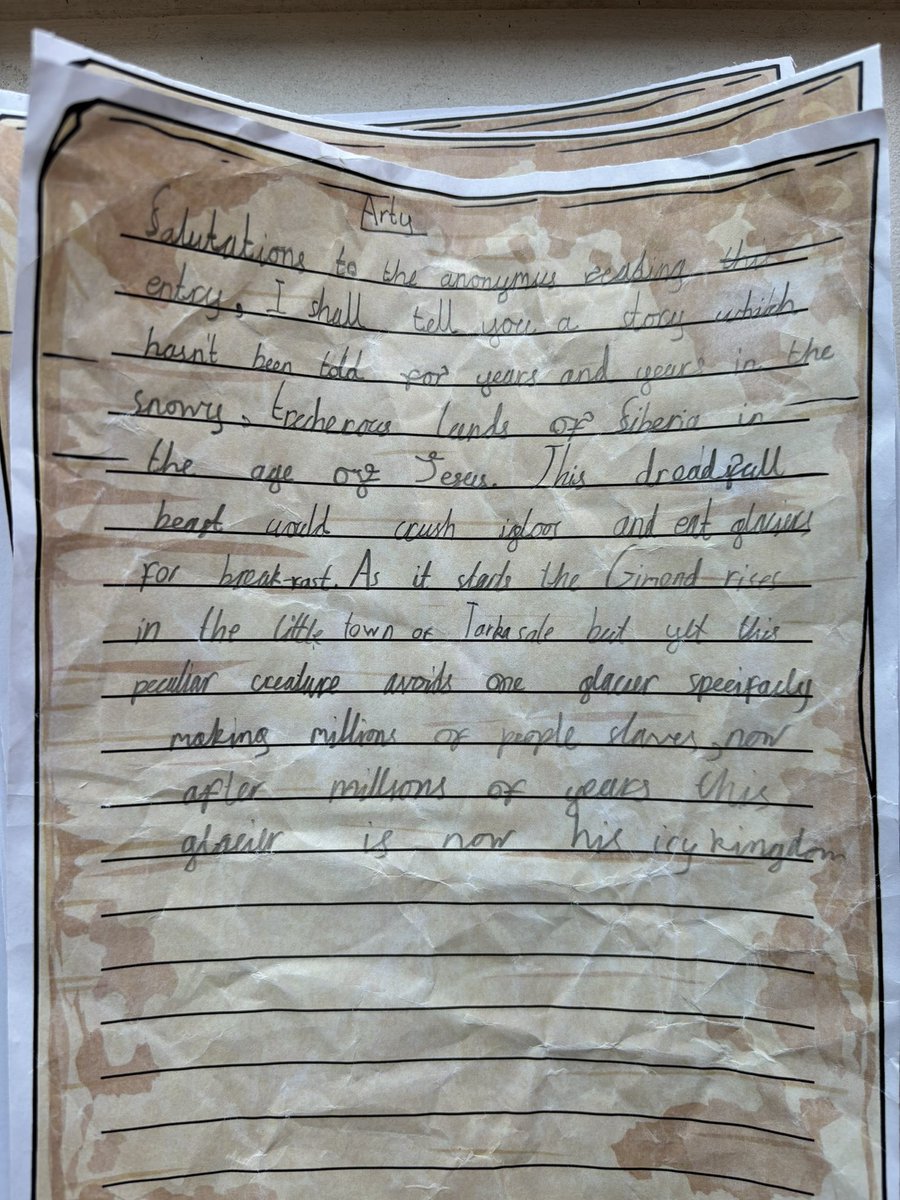 Arty
Salutations to the anonymus reading this
entry, I shall tell you a story which
hasn't been told for years and years in the
snowy, trecherous lands of Siberia in
the age of Jesus. This dreadfull
beast would crush igloos and eat glaciers
for break-fast. As it starts the Gimond rises
in the little town of Tarka sale but yet this
peculiar creature avoids one glacier specifacly
making millions of people slaves, now
after millions of years this
glacier is now his icy kingdom